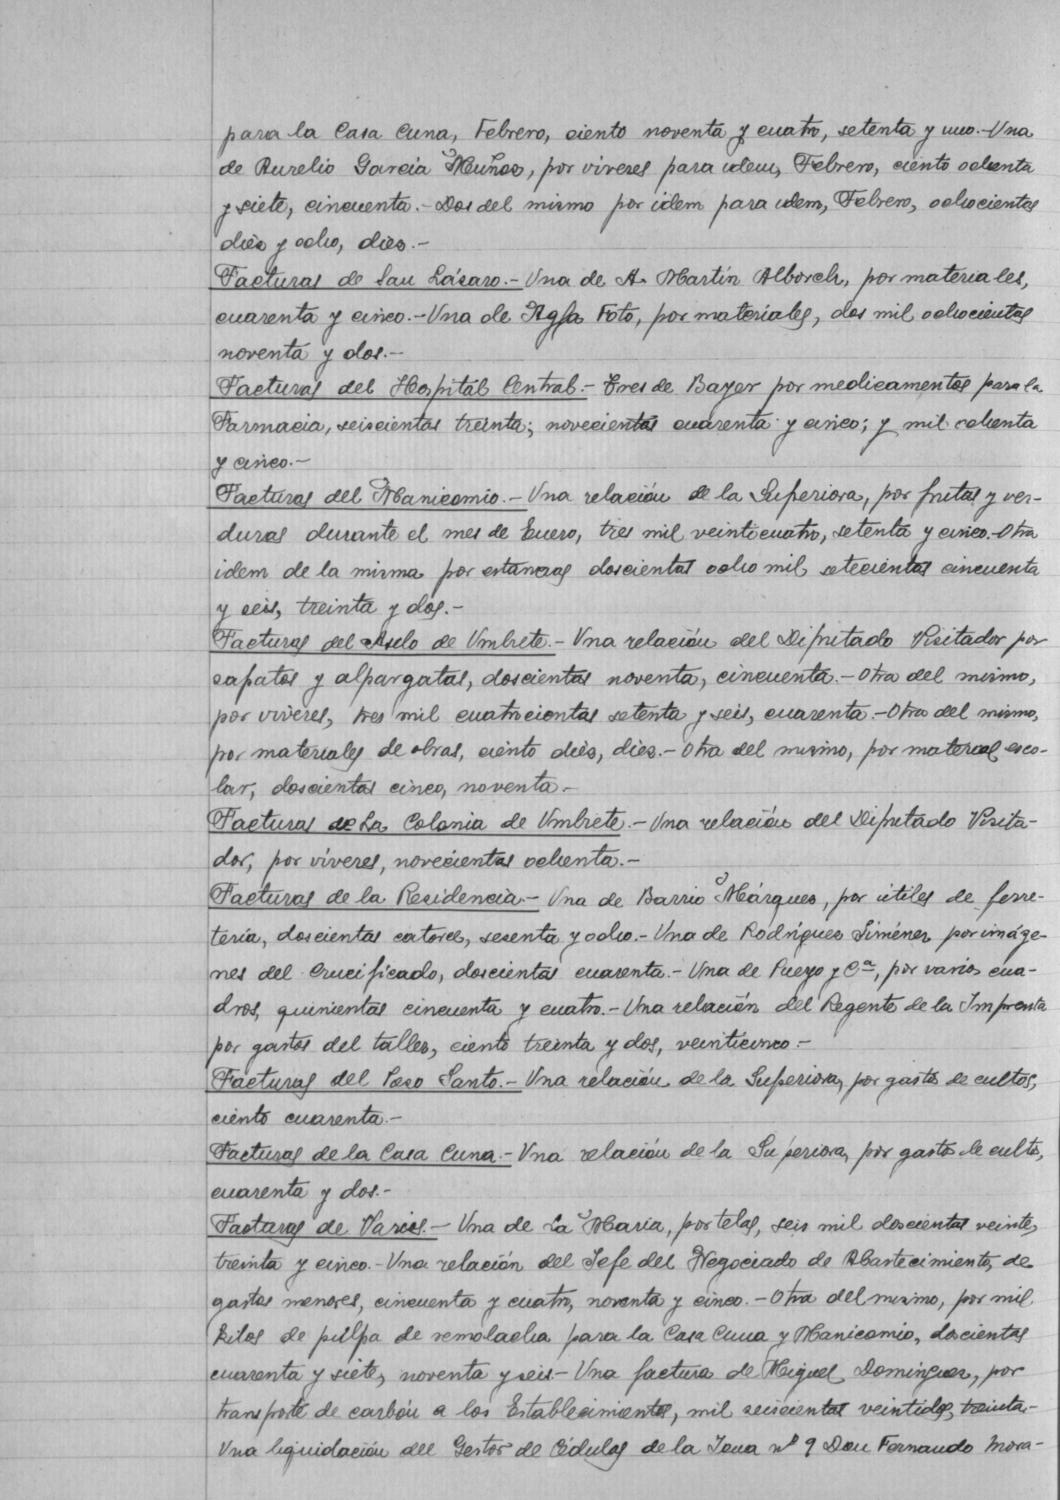 para la Casa Cuna, Febrero, ciento noventa y cuatro, setenta y uno.- Una
de Aurelio García Muñoz, por víveres para idem, Febrero, ciento ochenta
y siete, cincuenta.- Dos del mismo por idem para idem, Febrero, ochocientas
diez y ocho, diez.-
Facturas de San Lázaro.- Una de A. Martín Alborch, por materiales,
cuarenta y cinco.- Una de Agfa Foto, por materiales, dos mil ochocientas
noventa y dos.-
Facturas del Hospital Central.- Tres de Bayer por medicamentos para la
Farmacia, seiscientas treinta; novecientas cuarenta y cinco; y mil ochenta
y cinco.-
Facturas del Manicomio.- Una relación de la Superiora, por frutas y ver-
duras durante el mes de Enero, tres mil veinticuatro, setenta y cinco.- Otra
idem de la misma por estancias doscientas ocho mil setecientas cincuenta
y seis, treinta y dos.-
Facturas del Asilo de Umbrete.- Una relación del Diputado Visitador por
zapatos y alpargatas, doscientas noventa, cincuenta.- Otra del mismo,
por víveres, tres mil cuatrocientas setenta y seis, cuarenta.- Otra del mismo,
por materiales de obras, ciento diez, diez.- Otra del mismo, por material esco-
lar, doscientas cinco, noventa.-
Facturas de La Colonia de Umbrete.- Una relación del Diputado Visita-
dor, por víveres, novecientas ochenta.-
Facturas de la Residencia.- Una de Barrio Márquez, por útiles de ferre-
tería, doscientas catorce, sesenta y ocho.- Una de Rodríguez Jiménez por imáge-
nes del Crucificado, doscientas cuarenta.- Una de Pueyo y Cª, por varios cua-
dros, quinientas cincuenta y cuatro.- Una relación del Regente de la Imprenta
por gastos del taller, ciento treinta y dos, veinticinco.-
Facturas del Pozo Santo.- Una relación de la Superiora, por gastos de cultos,
ciento cuarenta.-
Facturas de la Casa Cuna.- Una relación de la Superiora, por gastos de culto,
cuarenta y dos.-
Facturas de Varios.- Una de La María, por telas, seis mil doscientas veinte,
treinta y cinco.- Una relación del Jefe del Negociado de Abastecimiento, de
gastos menores, cincuenta y cuatro, noventa y cinco.- Otra del mismo, por mil
kilos de pulpa de remolacha para la Casa Cuna y Manicomio, doscientas
cuarenta y siete, noventa y seis.- Una factura de Miguel Domínguez, por
transporte de carbón a los Establecimientos, mil seiscientas veintidos, treinta.-
Una liquidación del Gestor de Cédulas de la Zona nº 9 Don Fernando Mora-